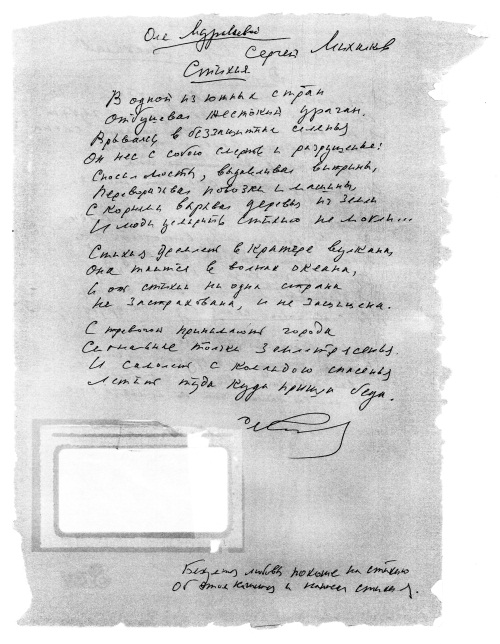 Оле Муравьевой
Сергей Михалков
Стихия
В одной из южных стран
Отбушевал жестокий ураган.
Врываясь в беззащитные селенья
Он нес с собою смерть и разрушенье:
Снося мосты, выдавливая витрины,
Переворачивая повозки и машины,
С корнями вырывая деревья из земли
И люди усмирить стихию не могли...
Стихия дремлет в кратере вулкана,
Она таится в волнах океана,
И от стихии ни одна страна
Не застрахована, и не защищена.
С тревогой принимают города
Сигнальные толчки землетрясенья.
И самолет с командою спасенья
Летит туда куда пришла беда.
любовь похожа на стихию
Об этом и стихия.